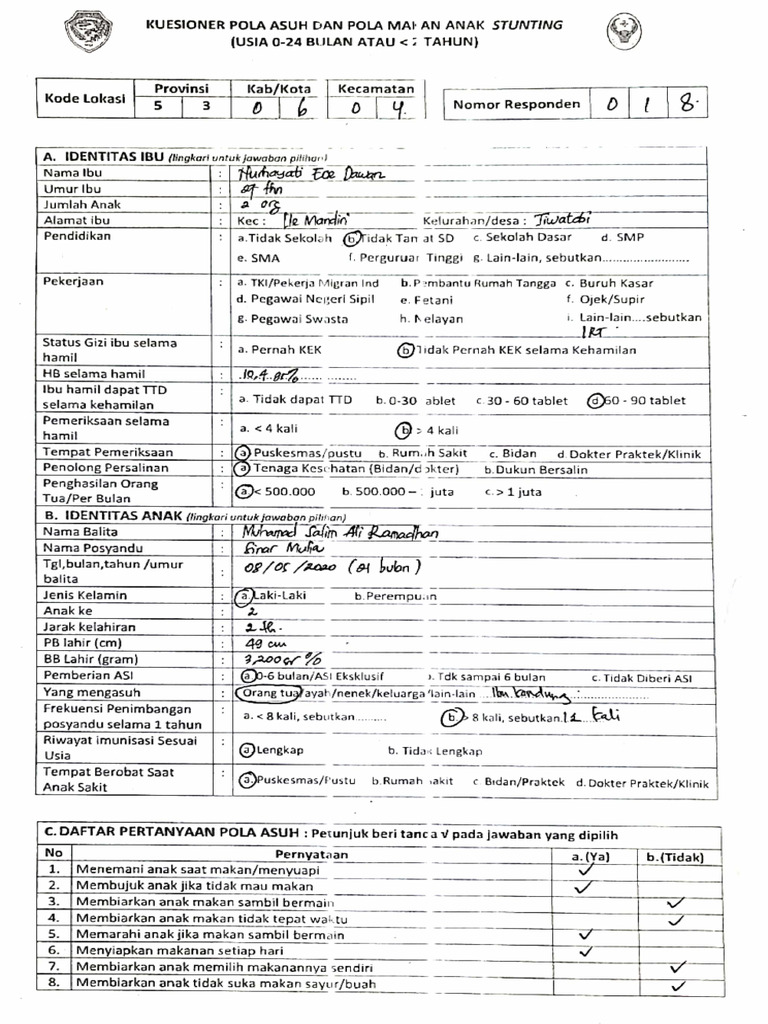 KUESIONER POLA ASUH DAN POLA MAKAN ANAK STUNTING
(USIA 0-24 BULAN ATAU < 2 TAHUN)
Kode Lokasi Provinsi Kab/Kota Kecamatan
5 3 0 6 0 4
Nomor Responden 0 1 8
A. IDENTITAS IBU (lingkari untuk jawaban pilihan)
Nama Ibu : Nurhayati Ece Dawan
Umur Ibu : thn
Jumlah Anak : 2 org
Alamat ibu : Kec : Ile Mandiri Kelurahan/desa : Tiwatobi
Pendidikan : a.Tidak Sekolah b.Tidak Tamat SD c. Sekolah Dasar d. SMP
e. SMA f. Perguruan Tinggi g. Lain-lain, sebutkan.........................
Pekerjaan : a. TKI/Pekerja Migran Ind b.Pembantu Rumah Tangga c. Buruh Kasar
d. Pegawai Negeri Sipil e. Petani f. Ojek/Supir
g. Pegawai Swasta h. Nelayan i. Lain-lain....sebutkan
IRT
Status Gizi ibu selama hamil : a. Pernah KEK b.Tidak Pernah KEK selama Kehamilan
HB selama hamil : 10,4 gr%
Ibu hamil dapat TTD selama kehamilan : a. Tidak dapat TTD b. 0-30 tablet c. 30 - 60 tablet d.60 - 90 tablet
Pemeriksaan selama hamil : a. < 4 kali b. > 4 kali
Tempat Pemeriksaan : a.Puskesmas/pustu b. Rumah Sakit c. Bidan d. Dokter Praktek/Klinik
Penolong Persalinan : a.Tenaga Kesehatan (Bidan/dokter) b.Dukun Bersalin
Penghasilan Orang Tua/Per Bulan : a.< 500.000 b. 500.000 – 1 juta c. > 1 juta
B. IDENTITAS ANAK (lingkari untuk jawaban pilihan)
Nama Balita : Muhamad Salim Ali Ramadhan
Nama Posyandu : Sinar Mulia
Tgl,bulan,tahun /umur balita : 08/05/2020 (21 bulan)
Jenis Kelamin : a.Laki-Laki b.Perempuan
Anak ke : 2
Jarak kelahiran : 2 th.
PB lahir (cm) : 49 cm
BB Lahir (gram) : 3,200 gr %
Pemberian ASI : a.0-6 bulan/ASI Eksklusif b. Tdk sampai 6 bulan c. Tidak Diberi ASI
Yang mengasuh : Orang tua/ayah/nenek/keluarga/lain-lain Ibu kandung
Frekuensi Penimbangan posyandu selama 1 tahun : a. < 8 kali, sebutkan......... b. > 8 kali, sebutkan 12 kali
Riwayat imunisasi Sesuai Usia : a.Lengkap b. Tidak Lengkap
Tempat Berobat Saat Anak Sakit : a.Puskesmas/Pustu b.Rumah sakit c. Bidan/Praktek d. Dokter Praktek/Klinik
C. DAFTAR PERTANYAAN POLA ASUH : Petunjuk beri tanda √ pada jawaban yang dipilih
No Pernyataan a.(Ya) b.(Tidak)
1. Menemani anak saat makan/menyuapi ✓
2. Membujuk anak jika tidak mau makan ✓
3. Membiarkan anak makan sambil bermain ✓
4. Membiarkan anak makan tidak tepat waktu ✓
5. Memarahi anak jika makan sambil bermain ✓
6. Menyiapkan makanan setiap hari ✓
7. Membiarkan anak memilih makanannya sendiri ✓
8. Membiarkan anak tidak suka makan sayur/buah ✓